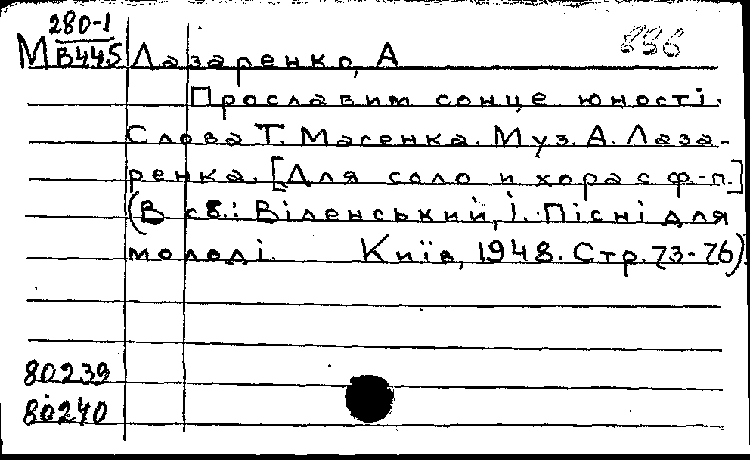 280-1
М В445 Лазаренко, А 896
Прославим сонце юності.
Слова Т. Масенка. Муз. А. Лаза-
ренка. [Для соло и хора с ф.-п.]
(В сб.: Віленський, І. Пісні для
молоді. Київ, 1948. Стр. 73-76).
80239
80240